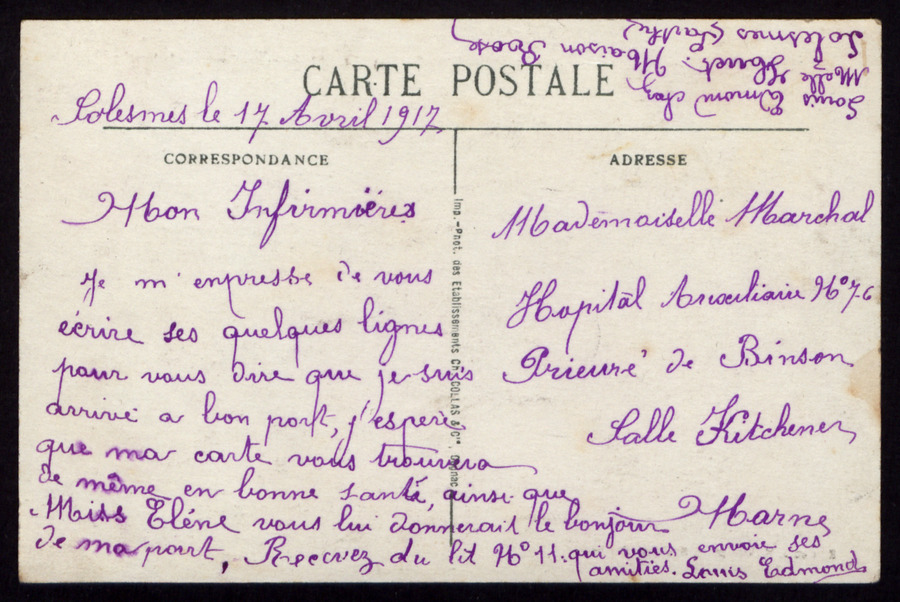 CARTE POSTALE
Solesmes le 17 Avril 1917
CORRESPONDANCE
Mon Infirmières
Je m'empresse de vous
écrire ses quelques lignes
pour vous dire que je suis
arrivé a bon port, j'espère
que ma carte vous trouvera
de même en bonne santé, ainsi que
Miss Eléne vous lui donnerait le bonjour
de ma part, Recevez du lit N° 11 qui vous envoie ses
amitiés. Louis Edmond
Imp.-Phot. des Etablissements Ch. COLLAS & Cie, Cognac
ADRESSE
Mademoiselle Marchal
Hopital Auxiliaire N° 76
Prieuré de Binson
Salle Kitchener
Marne
Louis Edmond chez
Melle Houet. Maison Rose
Solesmes (Sarthe)